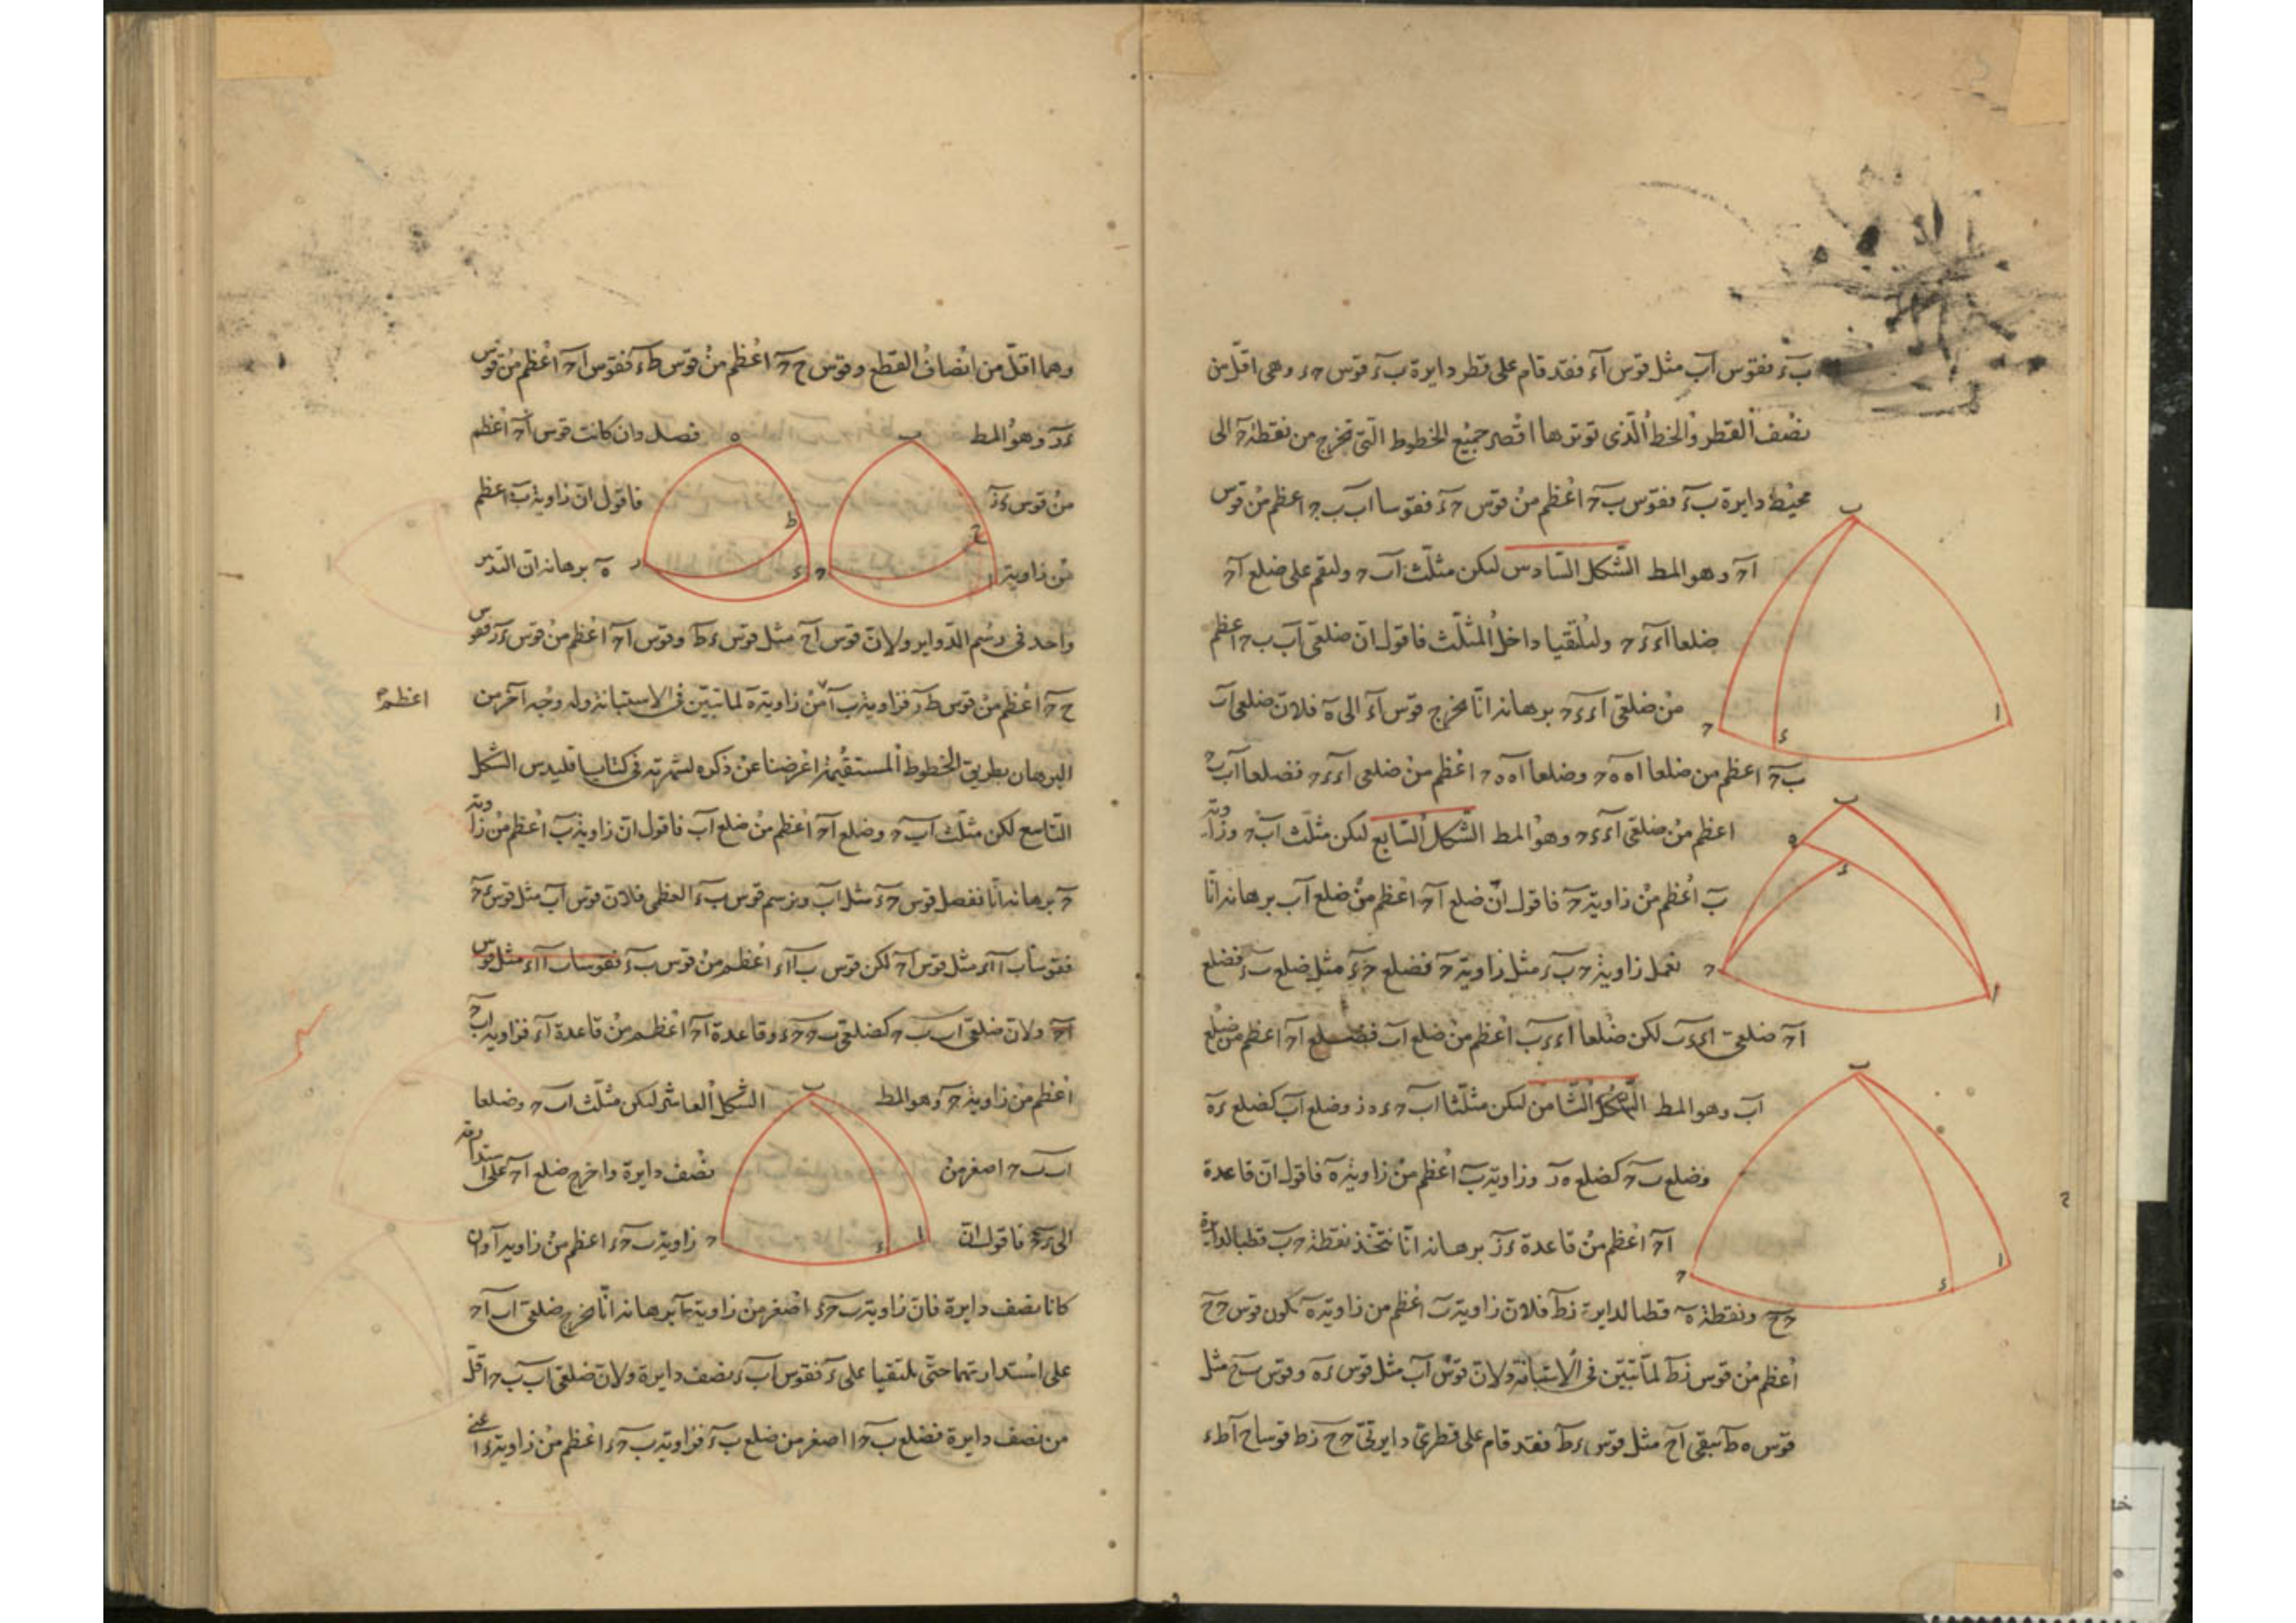 ب ء فقوس اب مثل قوس اء فقد قام على قطر دايرة ب ء قوس حء وهى اقل من
نصف القطر والخط الذى توترها اقصر جميع الخطوط التى تخرج من نقطة ح الى
محيط دايرة ب ء فقوس ب ح اعظم من قوس ح ء فقوسا اب ب ح اعظم من قوس
اح وهو المط الشكل السادس ليكن مثلث اب ح وليقم على ضلع اح
ضلعا اء ء ح وليلتقيا داخل المثلث فاقول ان ضلعى اب ب ح اعظم
من ضلعى اء ء ح برهانه انا نخرج قوس اء الى ه فلان ضلعى اب
ب ح اعظم من ضلعا اه ه ح وضلعا اه ه ح اعظم من ضلعى اء ء ح فضلعا اب ب ح
اعظم من ضلعى اء ء ح وهو المط الشكل السابع ليكن مثلث اب ح وزاوية
ب اعظم من زاوية ح فاقول ان ضلع اح اعظم من ضلع اب برهانه انا
نعمل زاوية ح ب ء مثل زاوية ح فضلع ح ء مثل ضلع ب ء فضلع
اح ضلعى اء ء ب لكن ضلعا اء ء ب اعظم من ضلع اب فضلع اح اعظم من ضلع
اب وهو المط الشكل الثامن ليكن مثلثا اب ح ء ه ز وضلع اب كضلع ء ه
وضلع ب ح كضلع ه ز وزاوية ب اعظم من زاوية ه فاقول ان قاعدة
اح اعظم من قاعدة ء ز برهانه انا نتخذ نقطة ب قطبا لدايرة
ح ح ونقطة ه قطبا لدايرة زط فلان زاوية ب اعظم من زاوية ه تكون قوس ح ح
اعظم من قوس زط لما تبين فى الاستبانة ولان قوس اب مثل قوس ء ه وقوس ب ح مثل
قوس ه ط تبقى اح مثل قوس ء ط فقد قام على قطرى دايرتى ح ح زط قوسا اح ط ء
وهما اقل من انصاف القطع وقوس ح ح اعظم من قوس ط ء فقوس اح اعظم من قوس
ء ز وهو المط فصل وان كانت قوس اح اعظم
من قوس ء ز فاقول ان زاوية ب اعظم
من زاوية ه برهانه ان التدبير
واحد فى رسم الدواير ولان قوس اح مثل قوس ء ط وقوس اح اعظم من قوس ء ز فقوس
ح ح اعظم من قوس ط ز فزاوية ب من زاوية ه لما تبين فى الاستبانة وله وجه آخر من
اعظم
البرهان بطريق الخطوط المستقيمة اعرضنا عن ذكره لشهرته فى كتاب اقليدس الشكل
التاسع لكن مثلث اب ح وضلع اح اعظم من ضلع اب فاقول ان زاوية ب اعظم من زاوية
ح برهانه انا نفصل قوس ح ء مثل اب ونرسم قوس ب ء العظمى فلان قوس اب مثل قوس ء ح
فقوسا ب ا اء مثل قوس اح لكن قوس ب ا اء اعظم من قوس ب ء فقوسا ب ا اء مثل قوس
اح ولان ضلعى اب ب ح كضلعى ب ح ح ء وقاعدة اح اعظم من قاعدة ء فزاوية اب ح
اعظم من زاوية ح وهو المط الشكل العاشر ليكن مثلث اب ح وضلعا
اب ب ح اصغر من نصف دايرة واخرج ضلع اح على استدارته
الى ء فاقول ان زاوية ب ح ء اعظم من زاوية ا وان
كانا نصف دايرة فان زاوية ب ح ء اصغر من زاوية ا برهانه انا نخرج ضلعى اب اح
على استدارتهما حتى يلتقيا على ء فقوس اب ء نصف دايرة ولان ضلعى اب ب ح اقل
من نصف دايرة فضلع ب ح اصغر من ضلع ب ء فزاوية ب ح ء اعظم من زاوية ء اعنى